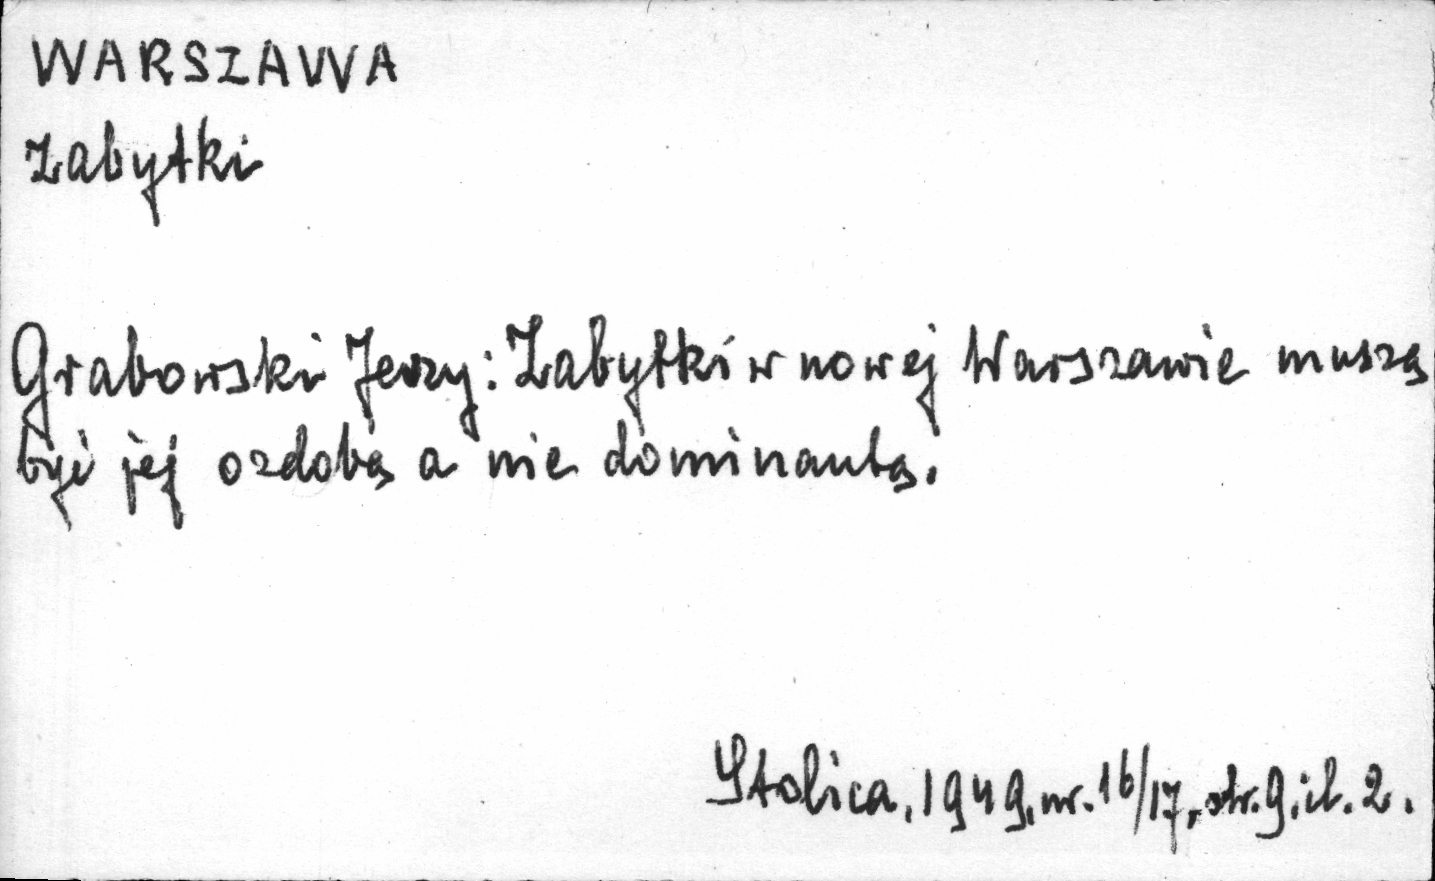 WARSZAWA
Zabytki
Grabowski Jerzy: Zabytki w nowej Warszawie muszą
być jej ozdobą a nie dominantą.
Stolica, 1949, nr. 16/17, str. 9, il. 2.